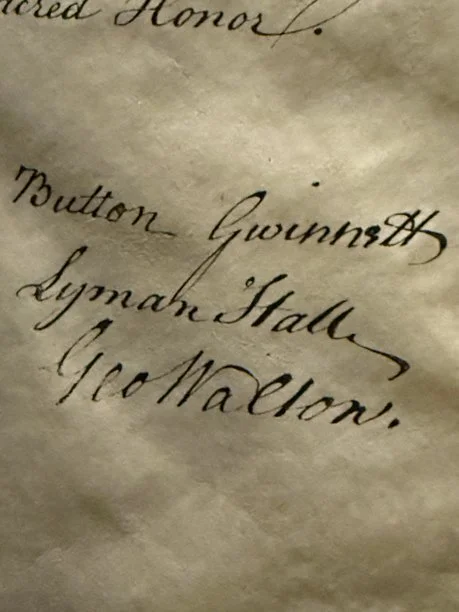 acred Honor.
Button Gwinnett
Lyman Hall
Geo Walton.